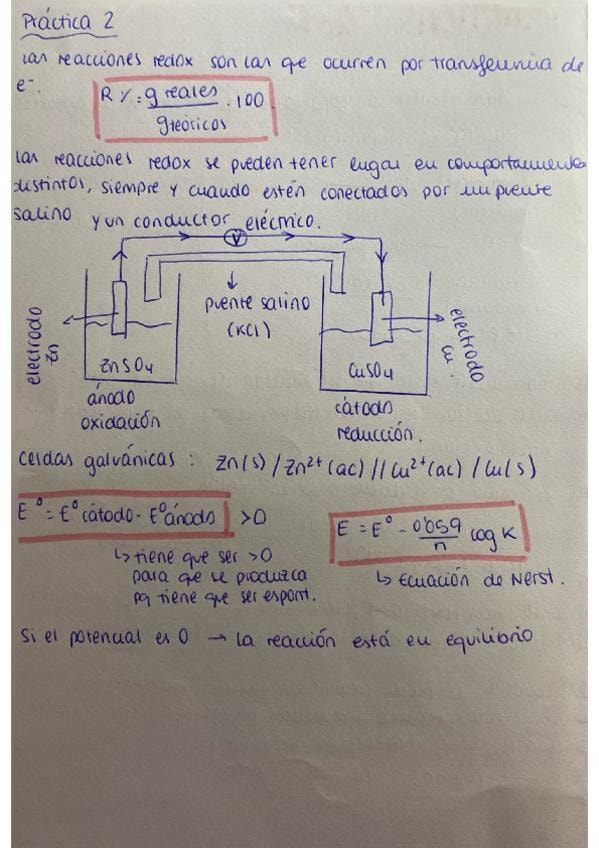 Práctica 2
Las reacciones redox son las que ocurren por transferencia de
e⁻.
R % = g reales / g teóricos · 100
Las reacciones redox se pueden tener lugar en compartimentos
distintos, siempre y cuando estén conectados por un puente
salino y un conductor eléctrico.
V
puente salino
(KCl)
electrodo
Zn
electrodo
Cu.
ZnSO₄
CuSO₄
ánodo
oxidación
cátodo
reducción.
Celdas galvánicas : Zn(s) / Zn²⁺(ac) // Cu²⁺(ac) / Cu(s)
E° = E° cátodo - E° ánodo > 0
E = E° - 0'059/n log K
↳ tiene que ser > 0
para que se produzca
pq tiene que ser espont.
↳ Ecuación de Nerst.
Si el potencual es 0 → La reacción está en equilibrio